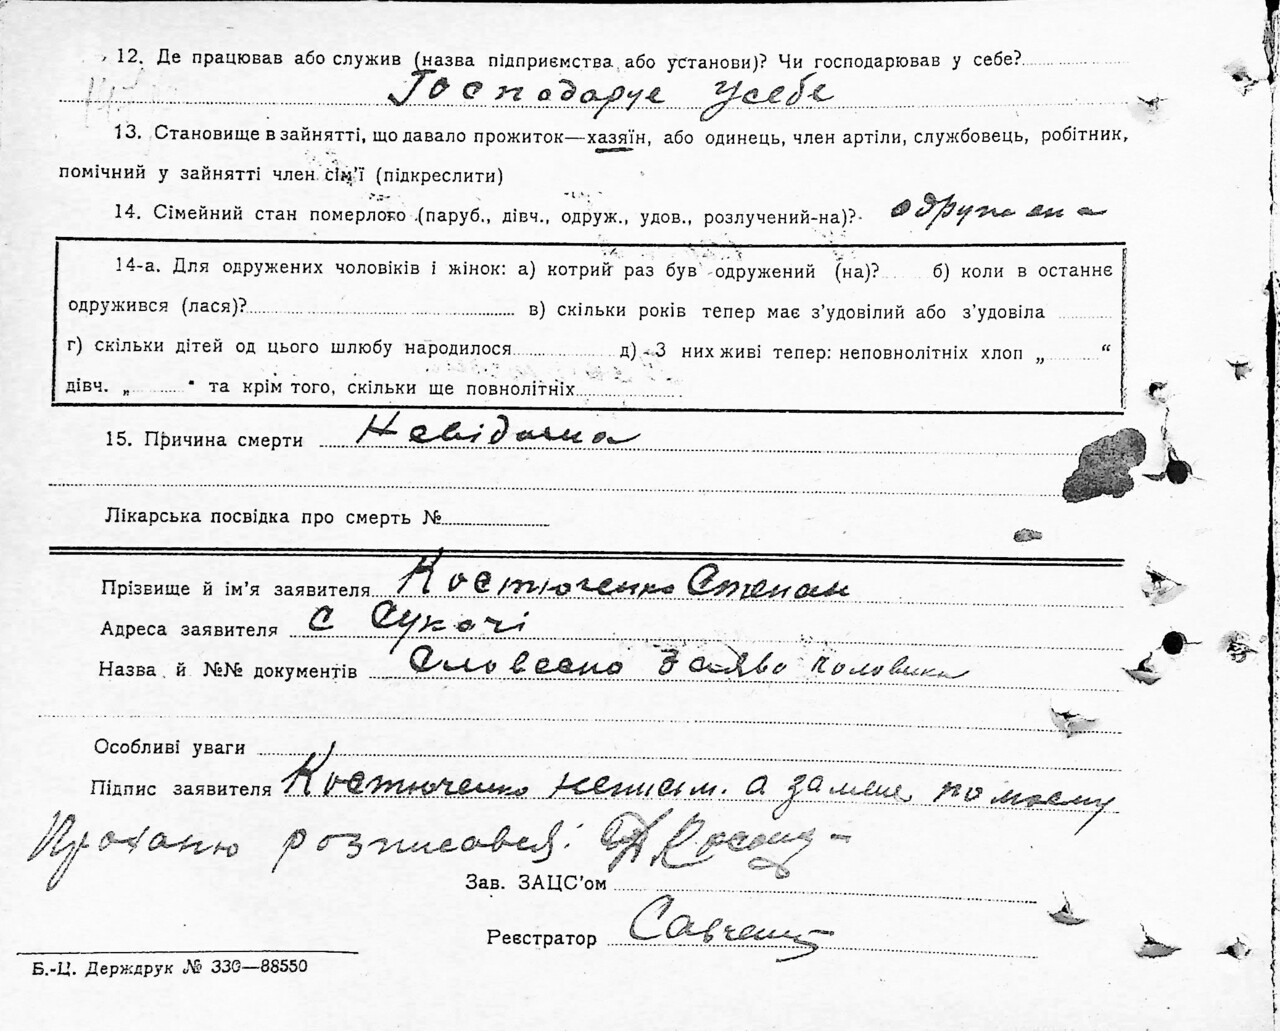 12. Де працював або служив (назва підприємства або установи)? Чи господарював у себе?
Господарує усебе
13. Становище в зайнятті, що давало прожиток—хазяїн, або одинець, член артіли, службовець, робітник,
помічний у зайнятті член сім'ї (підкреслити)
14. Сімейний стан померлого (паруб., дівч., одруж., удов., розлучений-на)? одружена
14-а. Для одружених чоловіків і жінок: а) котрий раз був одружений (на)? б) коли в останнє
одружився (лася)? в) скільки років тепер має з'удовілий або з'удовіла
г) скільки дітей од цього шлюбу народилося д) З них живі тепер: неповнолітніх хлоп „ “
дівч. „ “ та крім того, скільки ще повнолітніх
15. Причина смерти Невідома
Лікарська посвідка про смерть №
Прізвище й ім'я заявителя Костюченко Степан
Адреса заявителя с Сукачі
Назва й №№ документів Словесно заяво
Особливі уваги
Підпис заявителя Костюченко неписьм. а за мене по моєму
Проханю розписався:
Зав. ЗАЦС'ом
Реєстратор Савченко
Б.-Ц. Держдрук № 330—88550